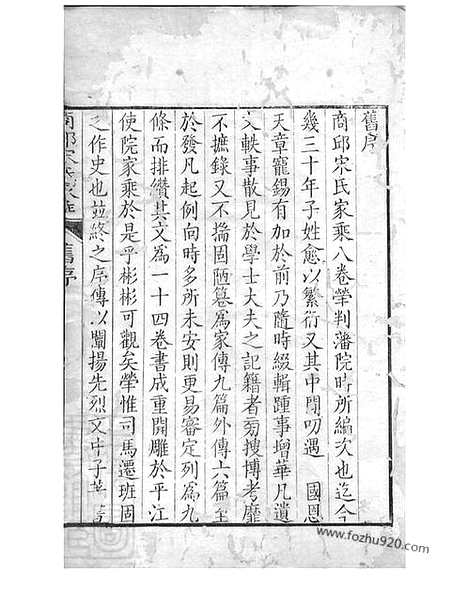 舊序
商邱宋氏家乘八卷犖判藩院時所編次也迄今
幾三十年子姓愈以繁衍又其中閒叨遇　國恩
天章寵錫有加於前乃隨時綴輯踵事增華凡遺
文軼事散見於學士大夫之記籍者旁搜博考靡
不摭錄又不揣固陋篹爲家傳九篇外傳上篇至
於發凡起例向時多所未安則更易審定列爲九
條而排纘其文爲一十四卷書成重開雕於平江
使院家乘於是乎彬彬可觀矣犖惟司馬遷班固
之作史也並終之序傳以闡揚先烈文中子
商邱宋氏家乘
舊序
www.fozhu920.com